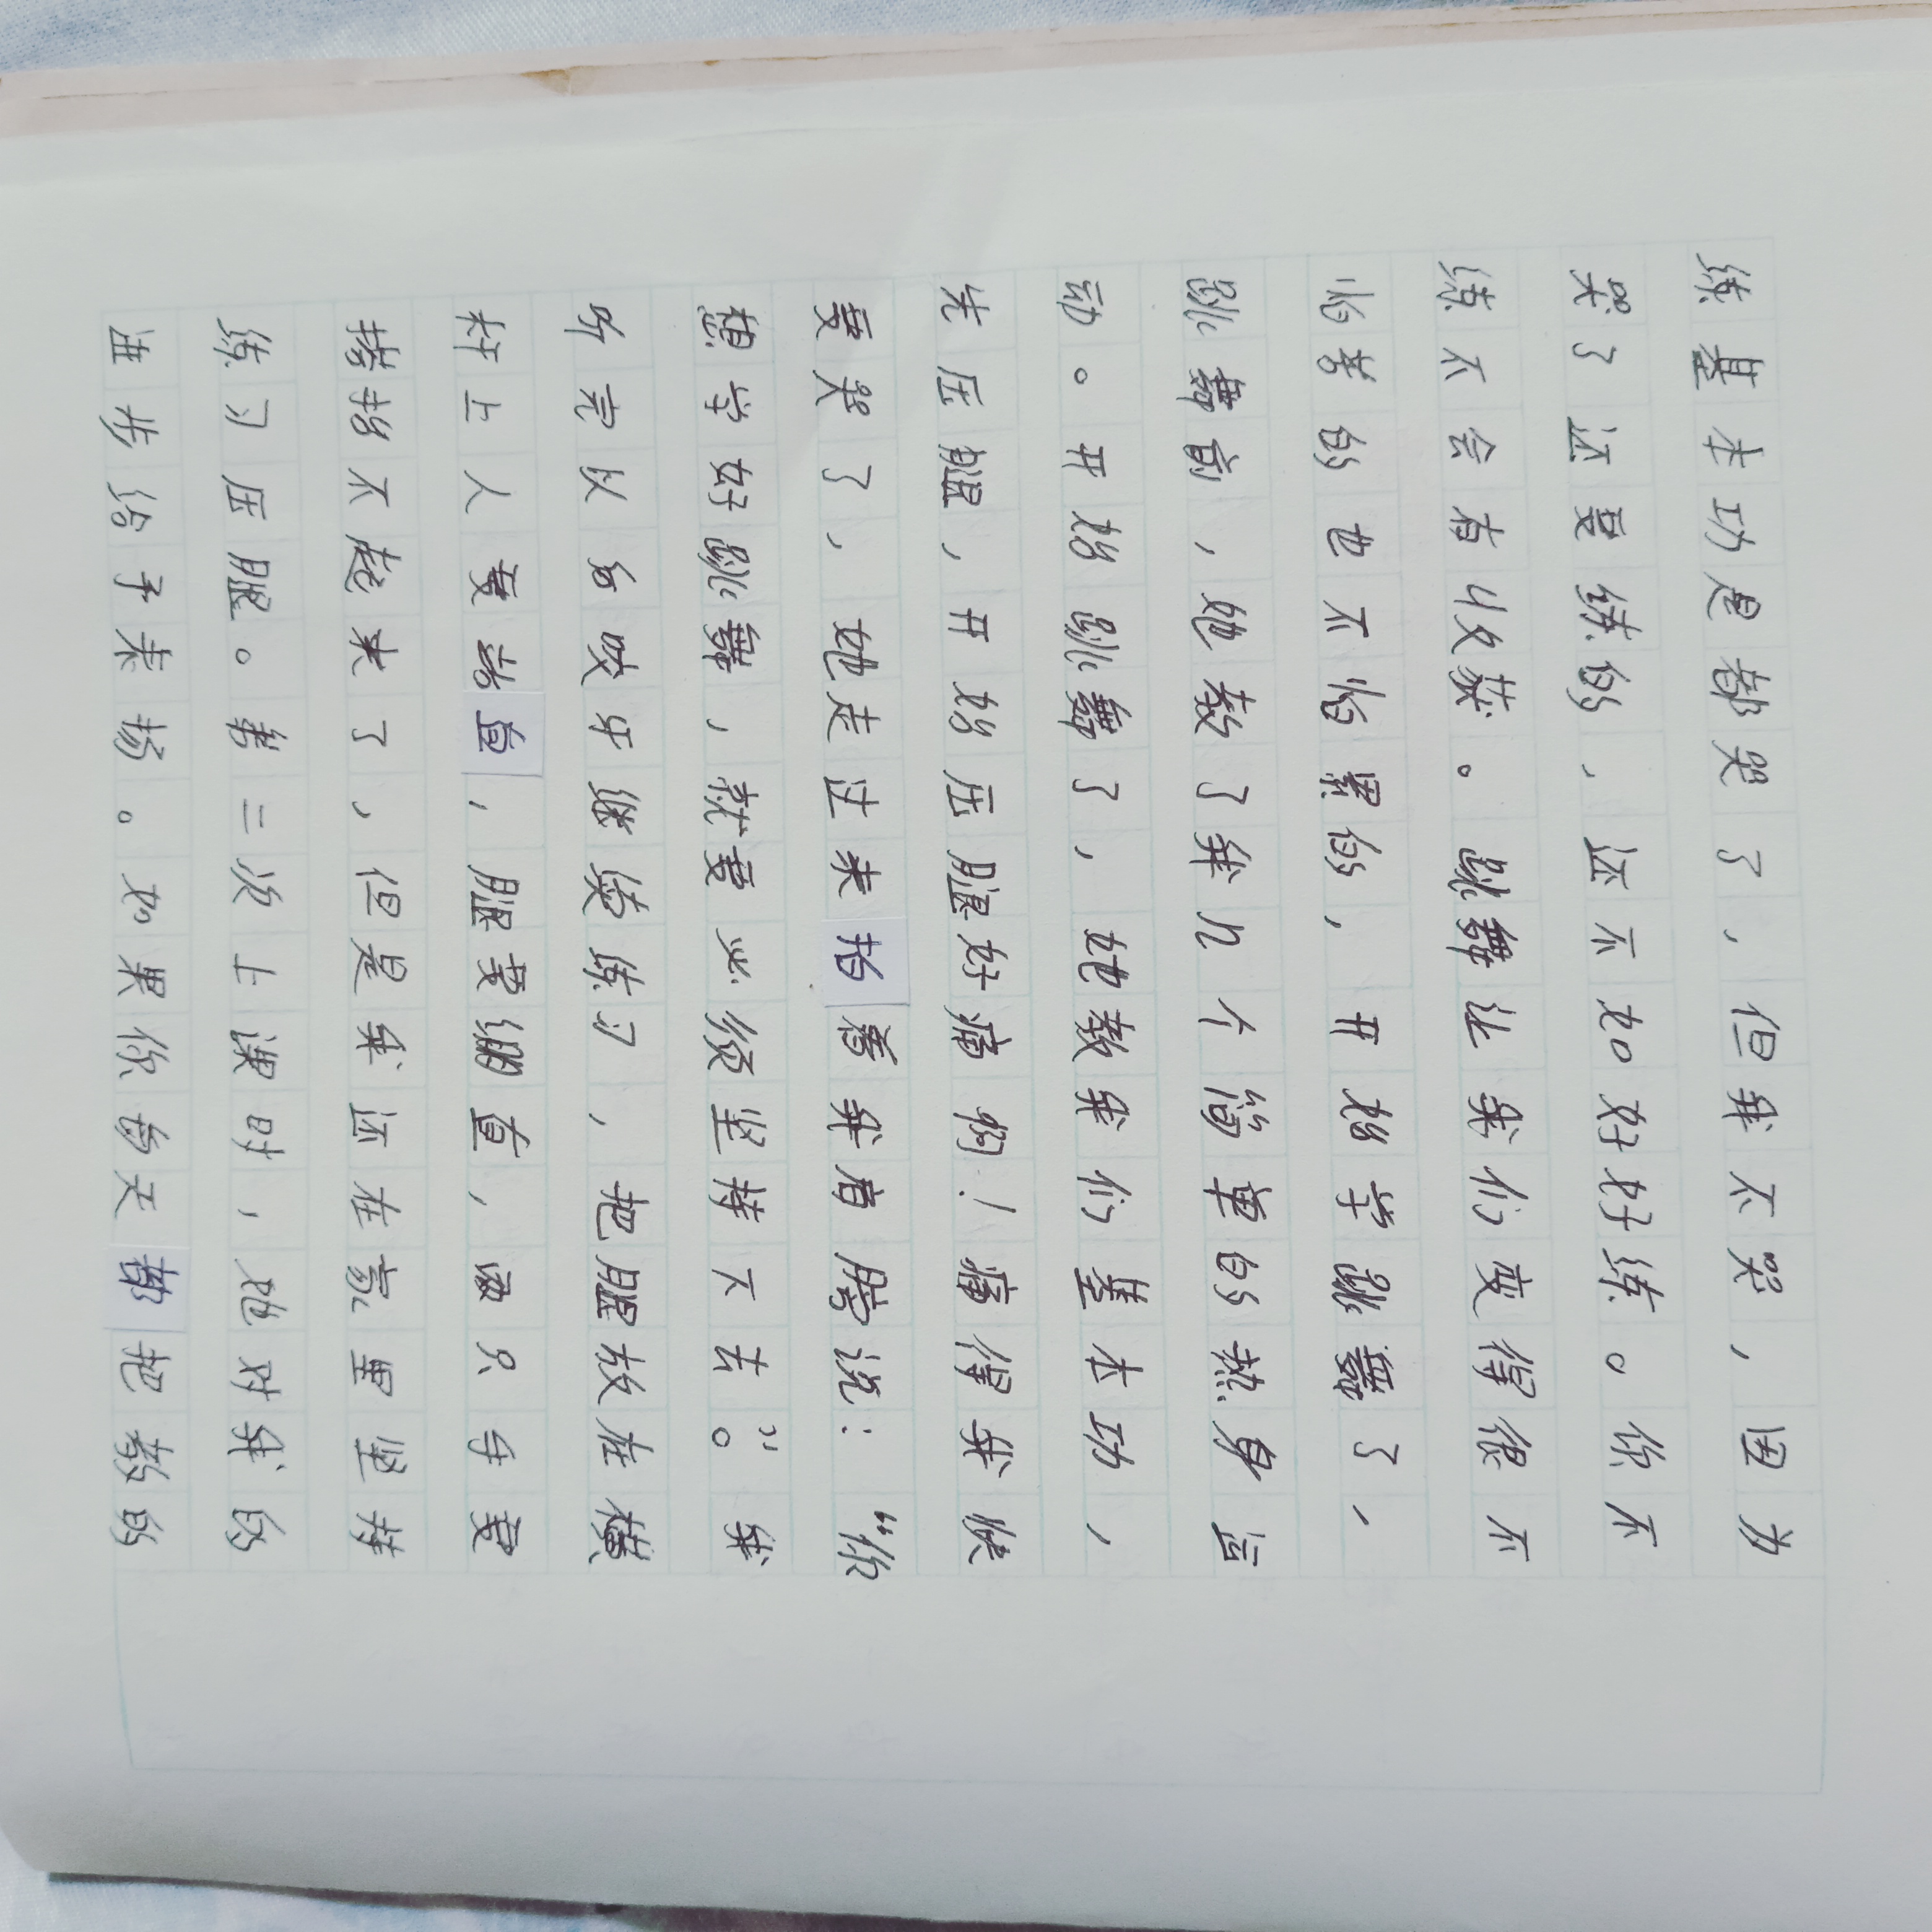 练基本功是都哭了，但我不哭，因为
哭了还要练的，还不如好好练。你不
练不会有收获。跳舞让我们变得很不
怕苦的也不怕累的，开始学跳舞了，
跳舞前，她教了我几个简单的热身运
动。开始跳舞了，她教我们基本功，
先压腿，开始压腿好痛啊！痛得我快
要哭了，她走过来指着我肩膀说：“你
想学好跳舞，就要必须坚持下去。”我
听完以后咬牙继续练习，把腿放在横
杆上人要站直，腿要绷直，两只手要
撑不起来了，但是我还在家里坚持
练习压腿。第二次上课时，她对我的
进步给予表扬。如果你每天都把教的